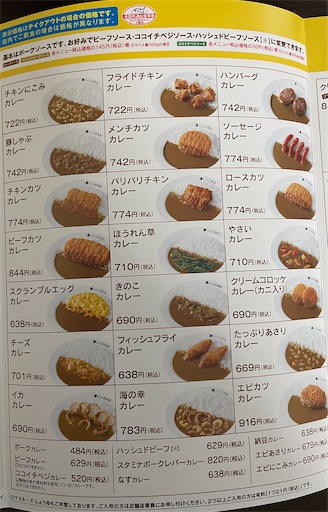 表示価格はテイクアウトの場合の価格です。
店内でご飲食の場合は価格が異なります。
基本はポークソースです。お好みでビーフソース・ココイチベジソース・ハッシュドビーフソース[※]に変更できます。
チキンにこみ
カレー
722円(税込)
フライドチキン
カレー
722円(税込)
ハンバーグ
カレー
742円(税込)
豚しゃぶ
カレー
742円(税込)
メンチカツ
カレー
742円(税込)
ソーセージ
カレー
774円(税込)
チキンカツ
カレー
774円(税込)
パリパリチキン
カレー
774円(税込)
ロースカツ
カレー
774円(税込)
ビーフカツ
カレー
844円(税込)
ほうれん草
カレー
710円(税込)
やさい
カレー
710円(税込)
スクランブルエッグ
カレー
638円(税込)
きのこ
カレー
690円(税込)
クリームコロッケ
カレー(カニ入り)
690円(税込)
チーズ
カレー
701円(税込)
フィッシュフライ
カレー
638円(税込)
たっぷりあさり
カレー
669円(税込)
イカ
カレー
690円(税込)
海の幸
カレー
783円(税込)
エビカツ
カレー
916円(税込)
ポークカレー 484円(税込)
ビーフカレー 629円(税込)
ココイチベジカレー 520円(税込)
ハッシュドビーフ[※] 629円(税込)
スタミナポークレバーカレー 820円(税込)
なすカレー 638円(税込)
納豆カレー 638円(税込)
エビあさりカレー 679円(税込)
エビにこみカレー 690円(税込)